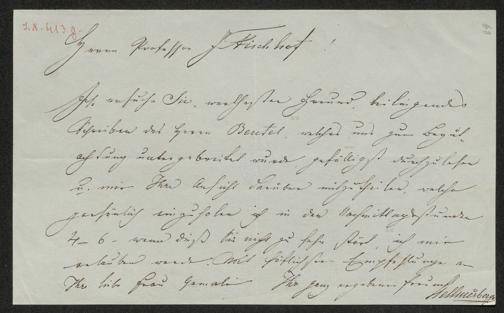 I.N. 413 9.
Herrn Professor J. Fischhof!
Ich ersuche Sie, werthester Freund, beiliegendes
Schreiben des Herrn Beutel, welches uns zum Begut-
achtung unterbreitet wurde, gefälligst durchzulesen
u. mir Ihre Ansicht darüber mitzutheilen, welche
persönlich einzuholen ich in den Nachmittagsstunden
4–6 – wenn dieß Sie nicht zu sehr stört, ich mir
erlauben werde. Mit höflichster Empfehlung an
Ihre liebe Frau Gemalin Ihr ganz ergebener Freund